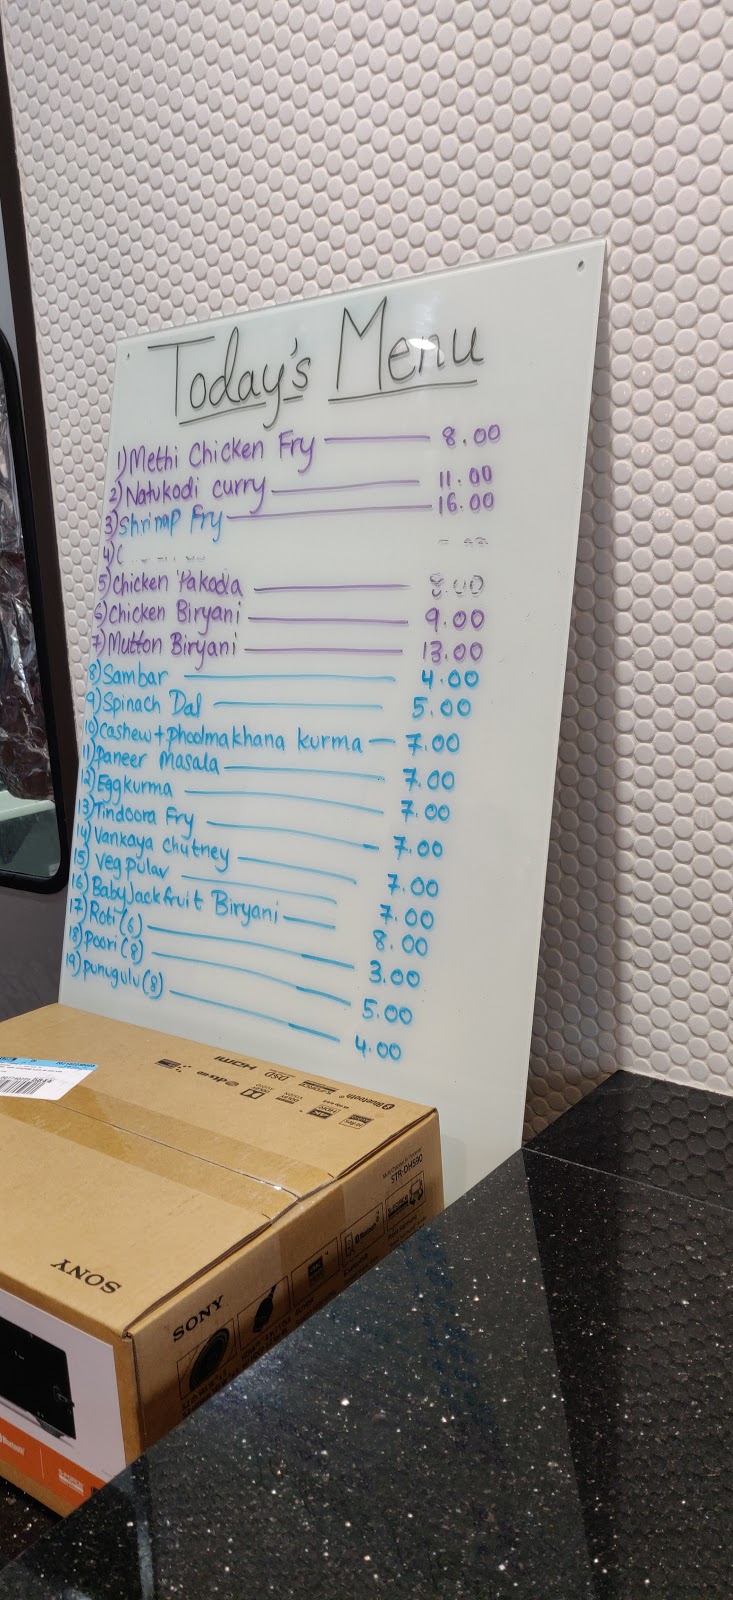 Today's Menu
1) Methi Chicken Fry 8.00
2) Natukodi curry 11.00
3) Shrimp Fry 16.00
4) C
5) Chicken Pakoda 8.00
6) Chicken Biryani 9.00
7) Mutton Biryani 13.00
8) Sambar 4.00
9) Spinach Dal 5.00
10) Cashew + phoolmakhana kurma 7.00
11) Paneer Masala 7.00
12) Egg kurma 7.00
13) Tindoora Fry 7.00
14) Vankaya chutney 7.00
15) Veg Pulav 7.00
16) Baby Jackfruit Biryani 8.00
17) Roti (6) 3.00
18) Poori (8) 5.00
19) punugulu (8) 4.00
HDMI
Bluetooth
STR-DH590
SONY
SONY
Bluetooth